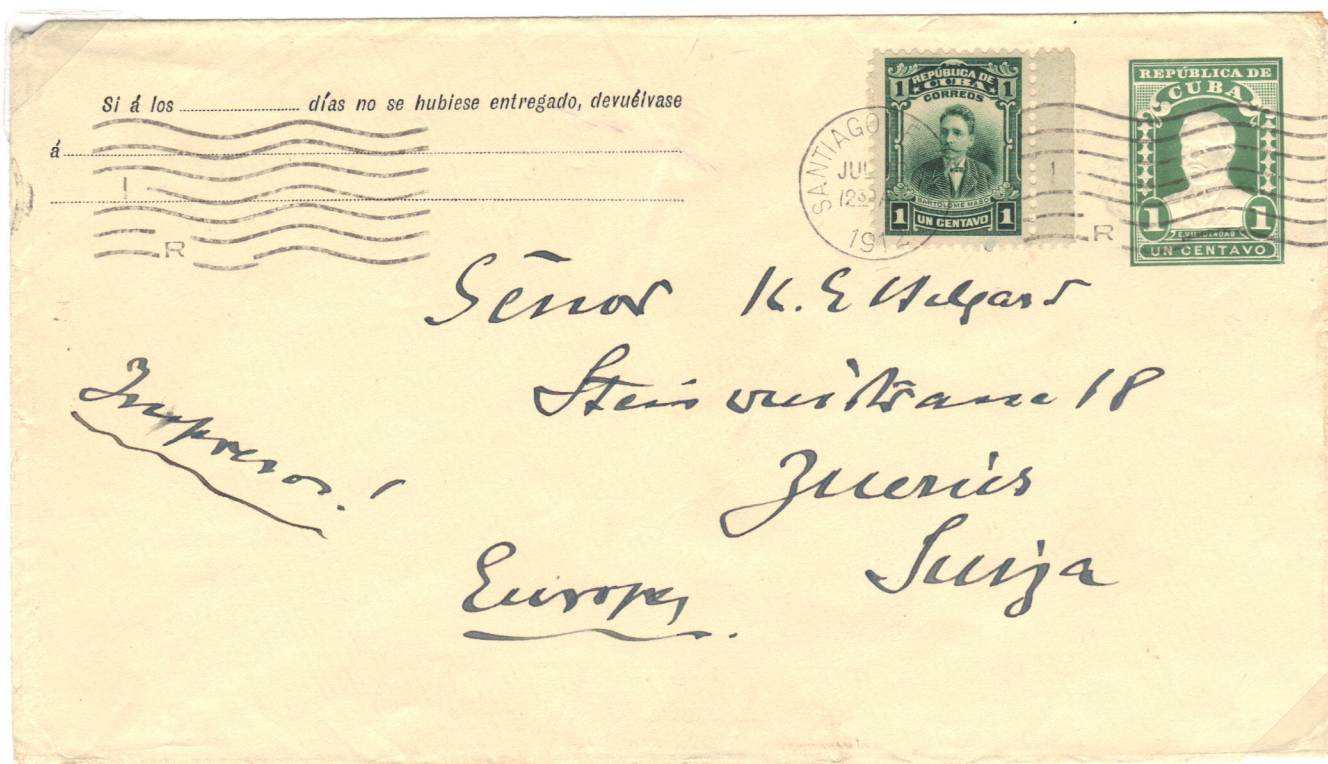 Si á los ............ días no se hubiese entregado, devuélvase
á
SANTIAGO
JUL
12
1912
1
R
REPÚBLICA DE
CUBA
CORREOS
1 1
BARTOLOMÉ MASÓ
1 UN CENTAVO 1
1
R
REPÚBLICA DE
CUBA
1 1
E. VILLUENDAS
UN CENTAVO
Señor K. E Hilgard
18
Impresos!
Zuerich
Suiza
Europa.